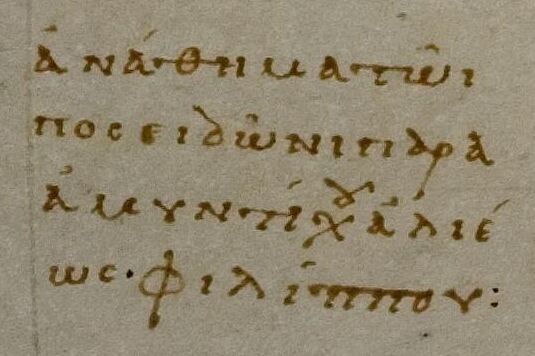 ἀνάθημα τῶι
ποσειδῶνι παρὰ
ἀμυντίχου ἁλιέ
ως· φιλίππου: